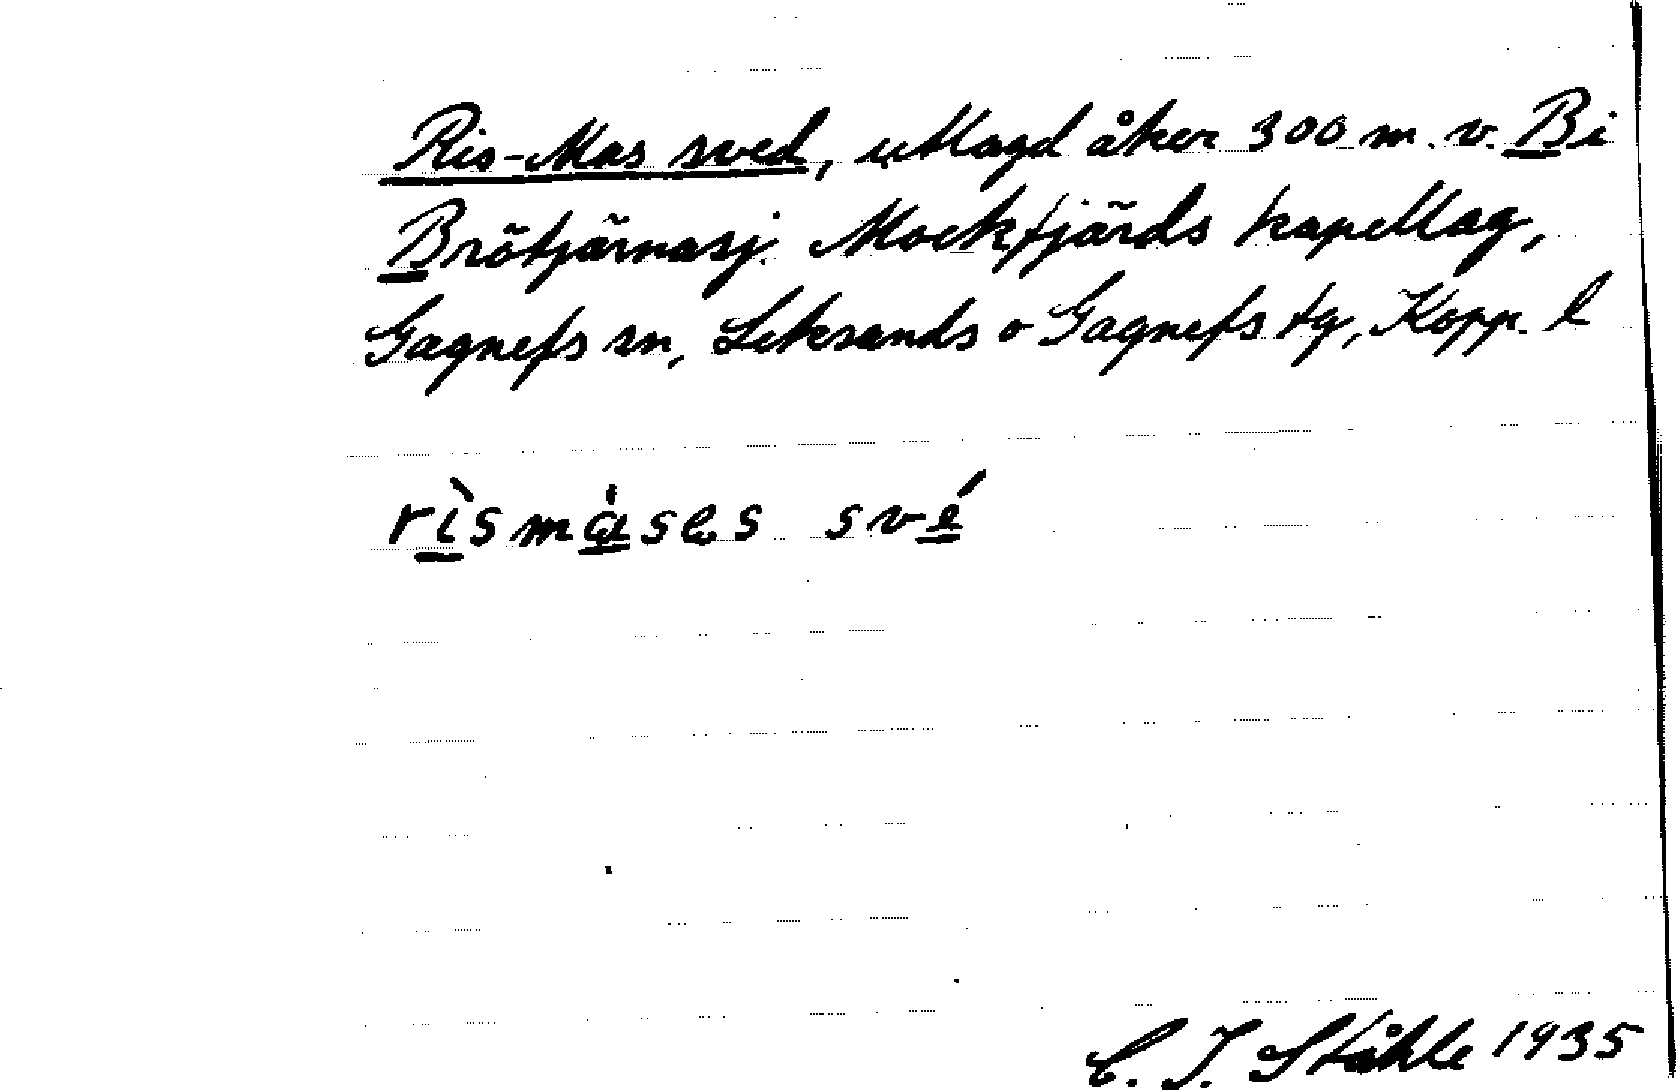 Ris-Mas sved, utlagd åker 300 m. v. Bi
Brötjärnasj. Mockfjärds kapellag,
Gagnefs sn, Leksands o Gagnefs tg, Kopp. l
rìsmàses své
C. I. Ståhle 1935